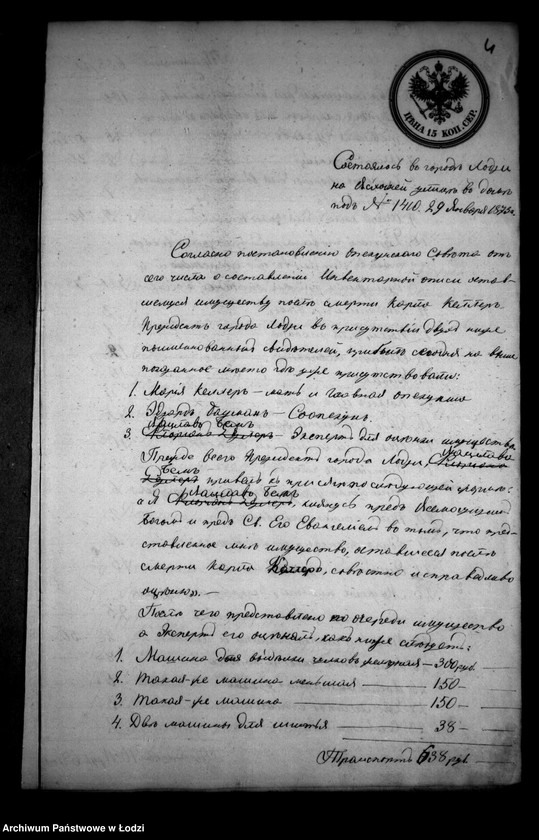 4
ЦѢНА 15 КОП. СЕР.
Состоялось въ городѣ Лодзи
на улицѣ въ домѣ
подъ № 1410. 29 Января 187
Согласно постановленію Опекунскаго Совѣта отъ
сего числа о составленіи Инвентарной описи остав-
шемуся имуществу послѣ смерти Карла Келлеръ,
Президентъ города Лодзи въ присутствіи двухъ ниже
поименованныхъ свидѣтелей, прибылъ сегодня на выше
показанное мѣсто гдѣ уже присутствовали:
1. Марія Келлеръ – мать и главная опекунша
2. Эдуардъ Бауманъ – Соопекунъ.
Вацлавъ Бемъ
3. – Экспертъ для оцѣнки имущества
Вацлава
Прежде всего Президентъ города Лодзи
Бемъ
привелъ къ присягѣ по слѣдующей формѣ:
Вацлавъ Бемъ
„а Я клянусь предъ Всемогущимъ
Богомъ и предъ Св. Его Евангеліемъ въ томъ, что пред-
ставленное мнѣ имущество, оставшееся послѣ
смерти Карла Келлеръ, совѣстно и справедливо
оцѣню". –
Послѣ чего представлено по очереди имущество
а Экспертъ его оцѣнялъ, какъ ниже слѣдуетъ:
1. Машина для выдѣлки чулковъ – 300 руб.
2. Такая-же машина меньшая – 150 –
3. Такая-же машина – 150 –
4. Двѣ машины для шитья – 38 –
Транспортъ 638 руб.
Archiwum Państwowe w Łodzi